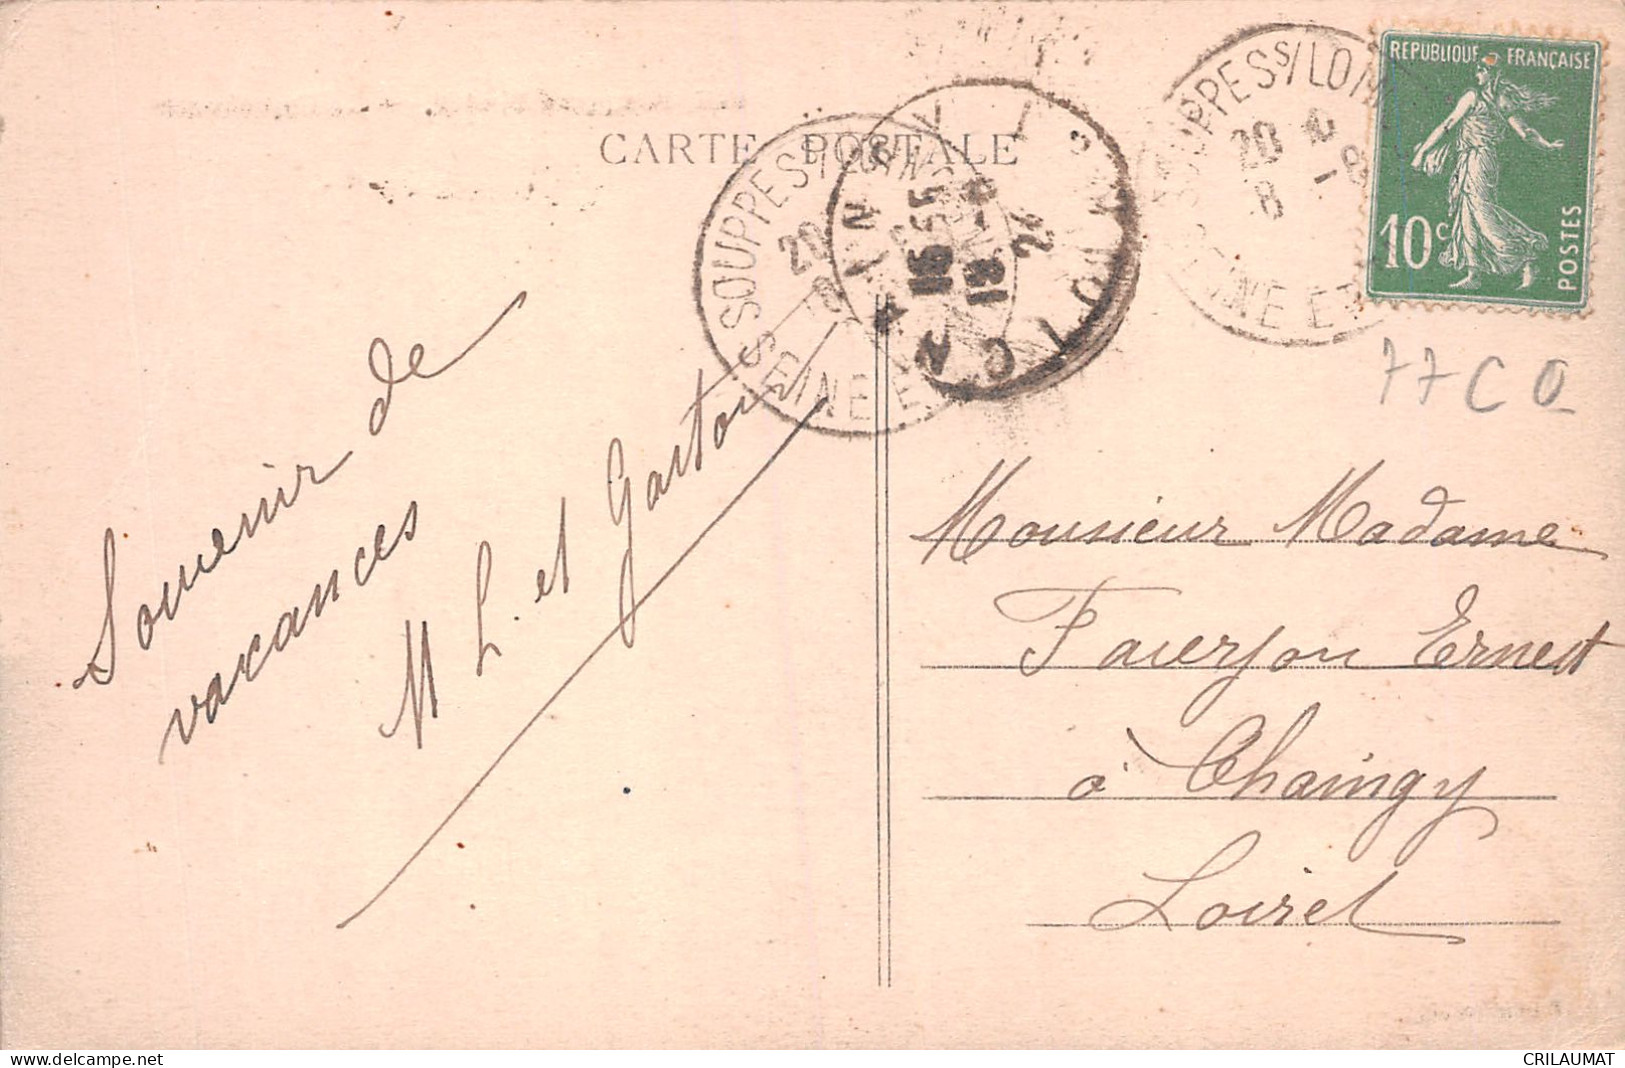 CARTE POSTALE
REPUBLIQUE FRANÇAISE
10c
POSTES
SOUPPES S/LOING
20
8
SEINE ET
SOUPPES S/LOIN
20
SEINE E
18 -8
24
77 CO
Souvenir de
vacances
M L. et Gaston
Monsieur Madame
Faverjon Ernest
à Chaingy
Loiret
delcampe.net
CRILAUMAT